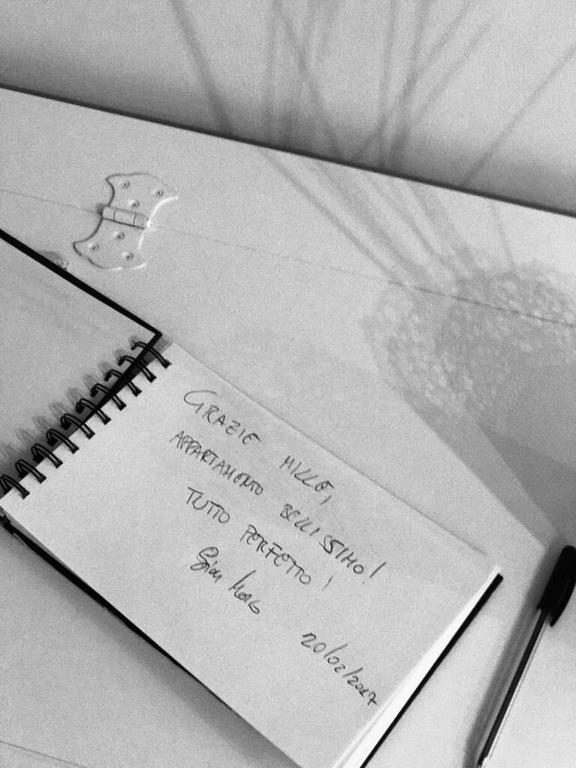 GRAZIE MILLE,
APPARTAMENTO BELLISSIMO!
TUTTO PERFETTO!
20/02/2017